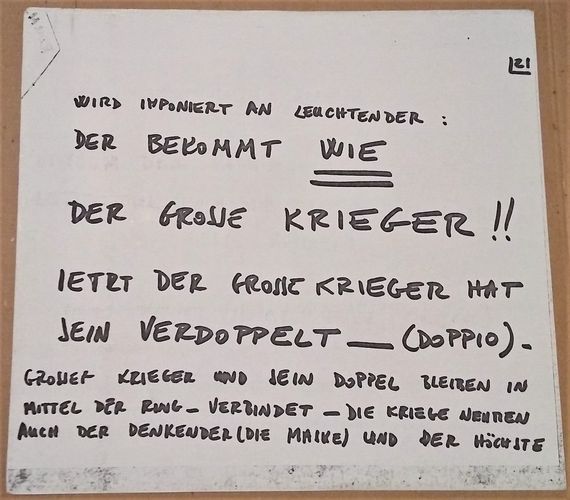 21
WIRD IMPONIERT AN LEUCHTENDER :
DER BEKOMMT WIE
DER GROSSE KRIEGER !!
IETZT DER GROSSE KRIEGER HAT
SEIN VERDOPPELT — (DOPPIO).
GROSSER KRIEGER UND SEIN DOPPEL BLEIBEN IN
MITTEL DER RING - VERBINDET - DIE KRIEGE NEHMEN
AUCH DER DENKENDER (DIE MASKE) UND DER HÖCHSTE